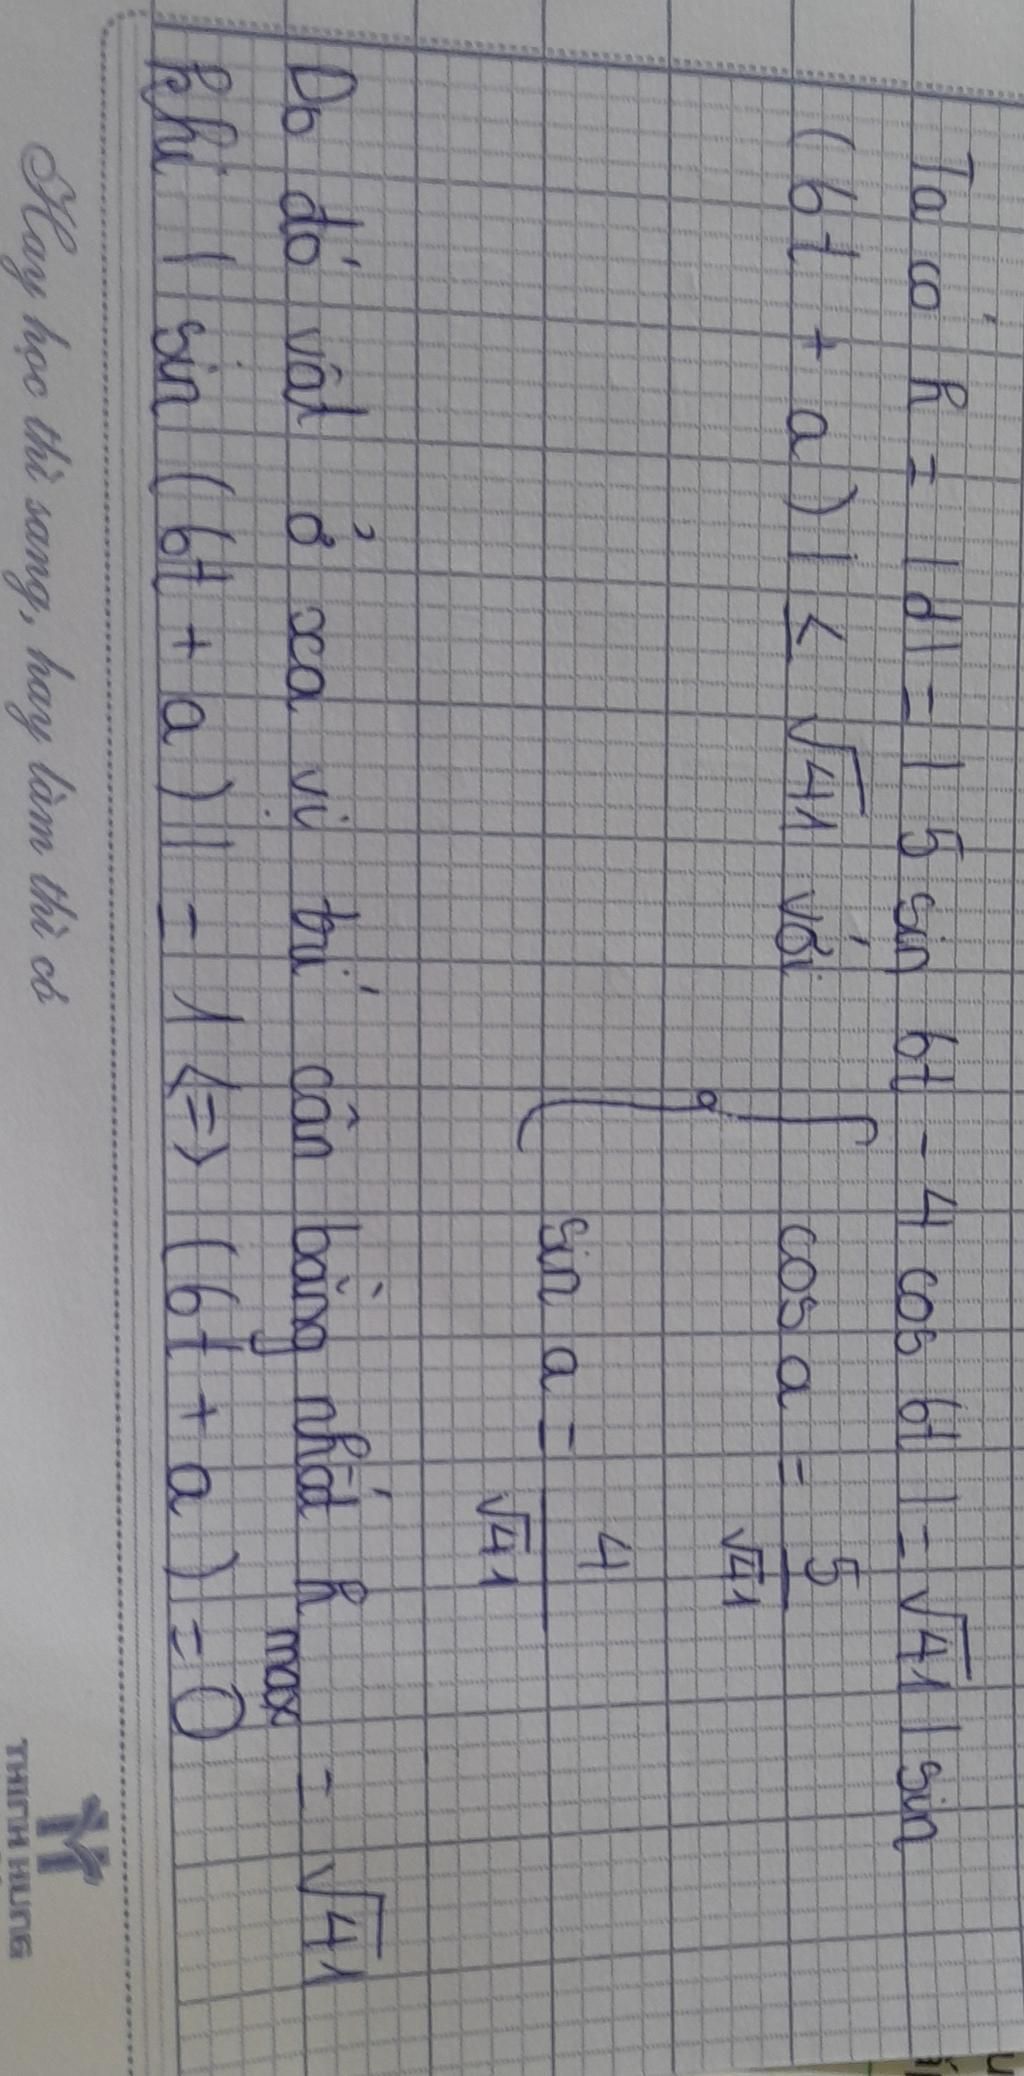 Ta có h = |d| = | 5 sin 6t - 4 cos 6t | = √41 | sin
(6t + a) | ≤ √41 với { cos a = 5/√41
sin a = 4/√41
Do đó vật ở xa vị trí cân bằng nhất h max = √41
khi | sin (6t + a) | = 1 <=> (6t + a) = 0
Hay học thì sang, hay làm thì có
THINH HUNG